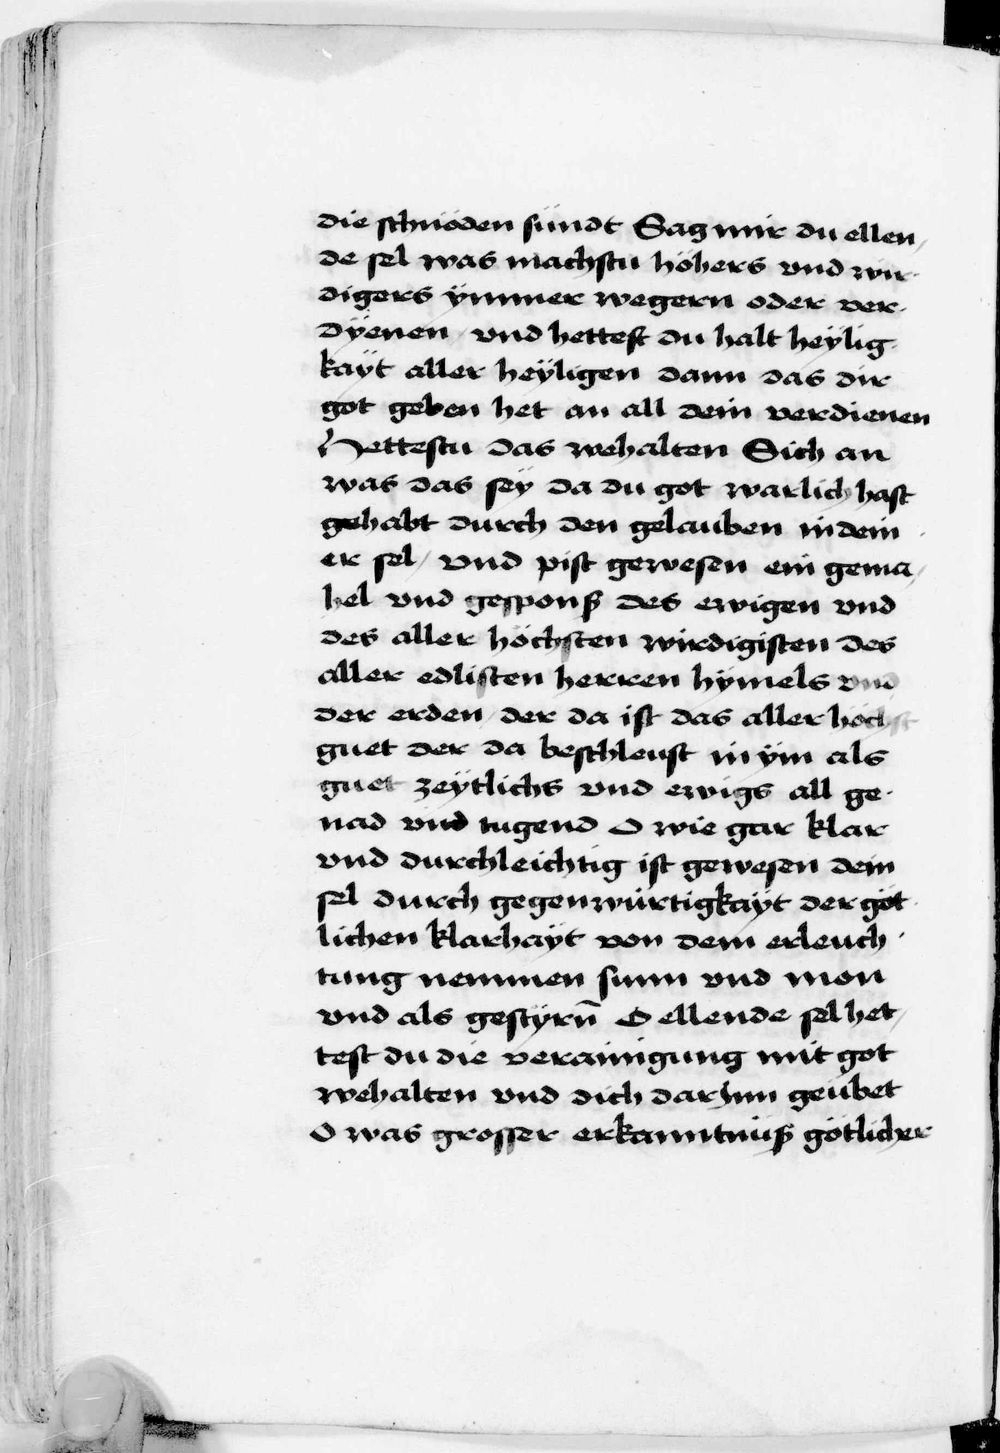 die schnöden sündt Sag mir du ellen,
de sel was machstu höhers vnd wir-
digers ÿmmer wegern oder ver-
dÿenen / vnd hettest du halt heÿlig-
kaÿt aller heÿligen dann das dir
got geben het an all dein verdienen
Hettestu das wehalten Sich an
was das seÿ da du got warlich hast
gehabt durch den gelauben in dein-
er sel / vnd pist gewesen ein gema,
hel vnd gesponß des ewigen vnd
des aller höchsten wirdigisten des
aller edlisten herren hÿmels vnd
der erden / der da ist das aller höchst
guet der da beschleust in ÿm als
guet zeÿtlichs vnd ewigs all ge-
nad vnd tugend O wie gar klar
vnd durchleichtig ist gewesen dein
sel durch gegenwürtigkaÿt der göt-
lichen klarhaÿt von dem erleuch-
tung nemmen sunn vnd mon
vnd als gestÿrn̄ O ellende sel het,
test du die verainigung mit got
wehalten vnd dich darJnn geübet
O was grosser erkanntnüß götlicher